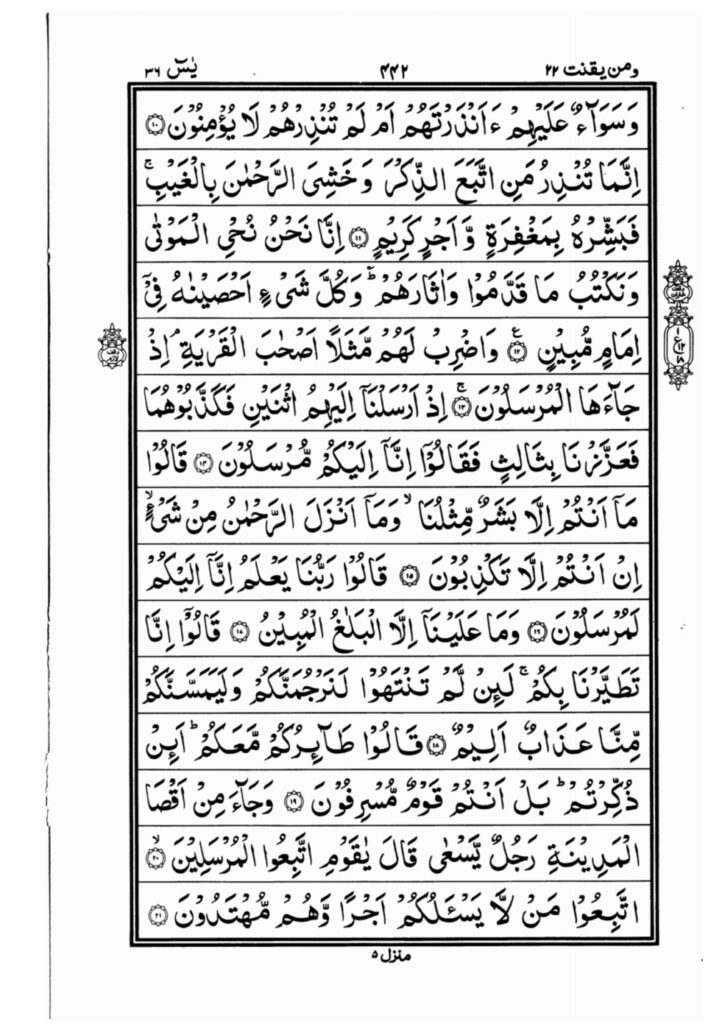 ومن یقنت ۲۲ ۴۴۲ یٰسٓ ۳۶
وَسَوَآءٌ عَلَیْہِمْ ءَاَنْذَرْتَهُمْ اَمْ لَمْ تُنْذِرْهُمْ لَا یُؤْمِنُوْنَ ۱۰
اِنَّمَا تُنْذِرُ مَنِ اتَّبَعَ الذِّکْرَ وَ خَشِیَ الرَّحْمٰنَ بِالْغَیْبِ ۚ
فَبَشِّرْهُ بِمَغْفِرَةٍ وَّ اَجْرٍ کَرِیْمٍ ۱۱ اِنَّا نَحْنُ نُحْیِ الْمَوْتٰی
وَنَکْتُبُ مَا قَدَّمُوْا وَاٰثَارَهُمْ ؕ وَکُلَّ شَیْءٍ اَحْصَیْنٰهُ فِیْۤ
اِمَامٍ مُّبِیْنٍ ۱۲ ع وَاضْرِبْ لَهُمْ مَّثَلًا اَصْحٰبَ الْقَرْیَةِ ۘ اِذْ
جَآءَهَا الْمُرْسَلُوْنَ ۱۳ ۚ اِذْ اَرْسَلْنَاۤ اِلَیْهِمُ اثْنَیْنِ فَکَذَّبُوْهُمَا
فَعَزَّزْنَا بِثَالِثٍ فَقَالُوْۤا اِنَّاۤ اِلَیْکُمْ مُّرْسَلُوْنَ ۱۴ قَالُوْا
مَاۤ اَنْتُمْ اِلَّا بَشَرٌ مِّثْلُنَا ۙ وَمَاۤ اَنْزَلَ الرَّحْمٰنُ مِنْ شَیْءٍ ۙ
اِنْ اَنْتُمْ اِلَّا تَکْذِبُوْنَ ۱۵ قَالُوْا رَبُّنَا یَعْلَمُ اِنَّاۤ اِلَیْکُمْ
لَمُرْسَلُوْنَ ۱۶ وَمَا عَلَیْنَاۤ اِلَّا الْبَلٰغُ الْمُبِیْنُ ۱۷ قَالُوْۤا اِنَّا
تَطَیَّرْنَا بِکُمْ ۚ لَئِنْ لَّمْ تَنْتَهُوْا لَنَرْجُمَنَّکُمْ وَلَیَمَسَّنَّکُمْ
مِّنَّا عَذَابٌ اَلِیْمٌ ۱۸ قَالُوْا طَآئِرُکُمْ مَّعَکُمْ ؕ اَئِنْ
ذُکِّرْتُمْ ؕ بَلْ اَنْتُمْ قَوْمٌ مُّسْرِفُوْنَ ۱۹ وَجَآءَ مِنْ اَقْصَا
الْمَدِیْنَةِ رَجُلٌ یَّسْعٰی قَالَ یٰقَوْمِ اتَّبِعُوا الْمُرْسَلِیْنَ ۲۰ ۙ
اتَّبِعُوْا مَنْ لَّا یَسْئَلُکُمْ اَجْرًا وَّهُمْ مُّهْتَدُوْنَ ۲۱
منزل ۵